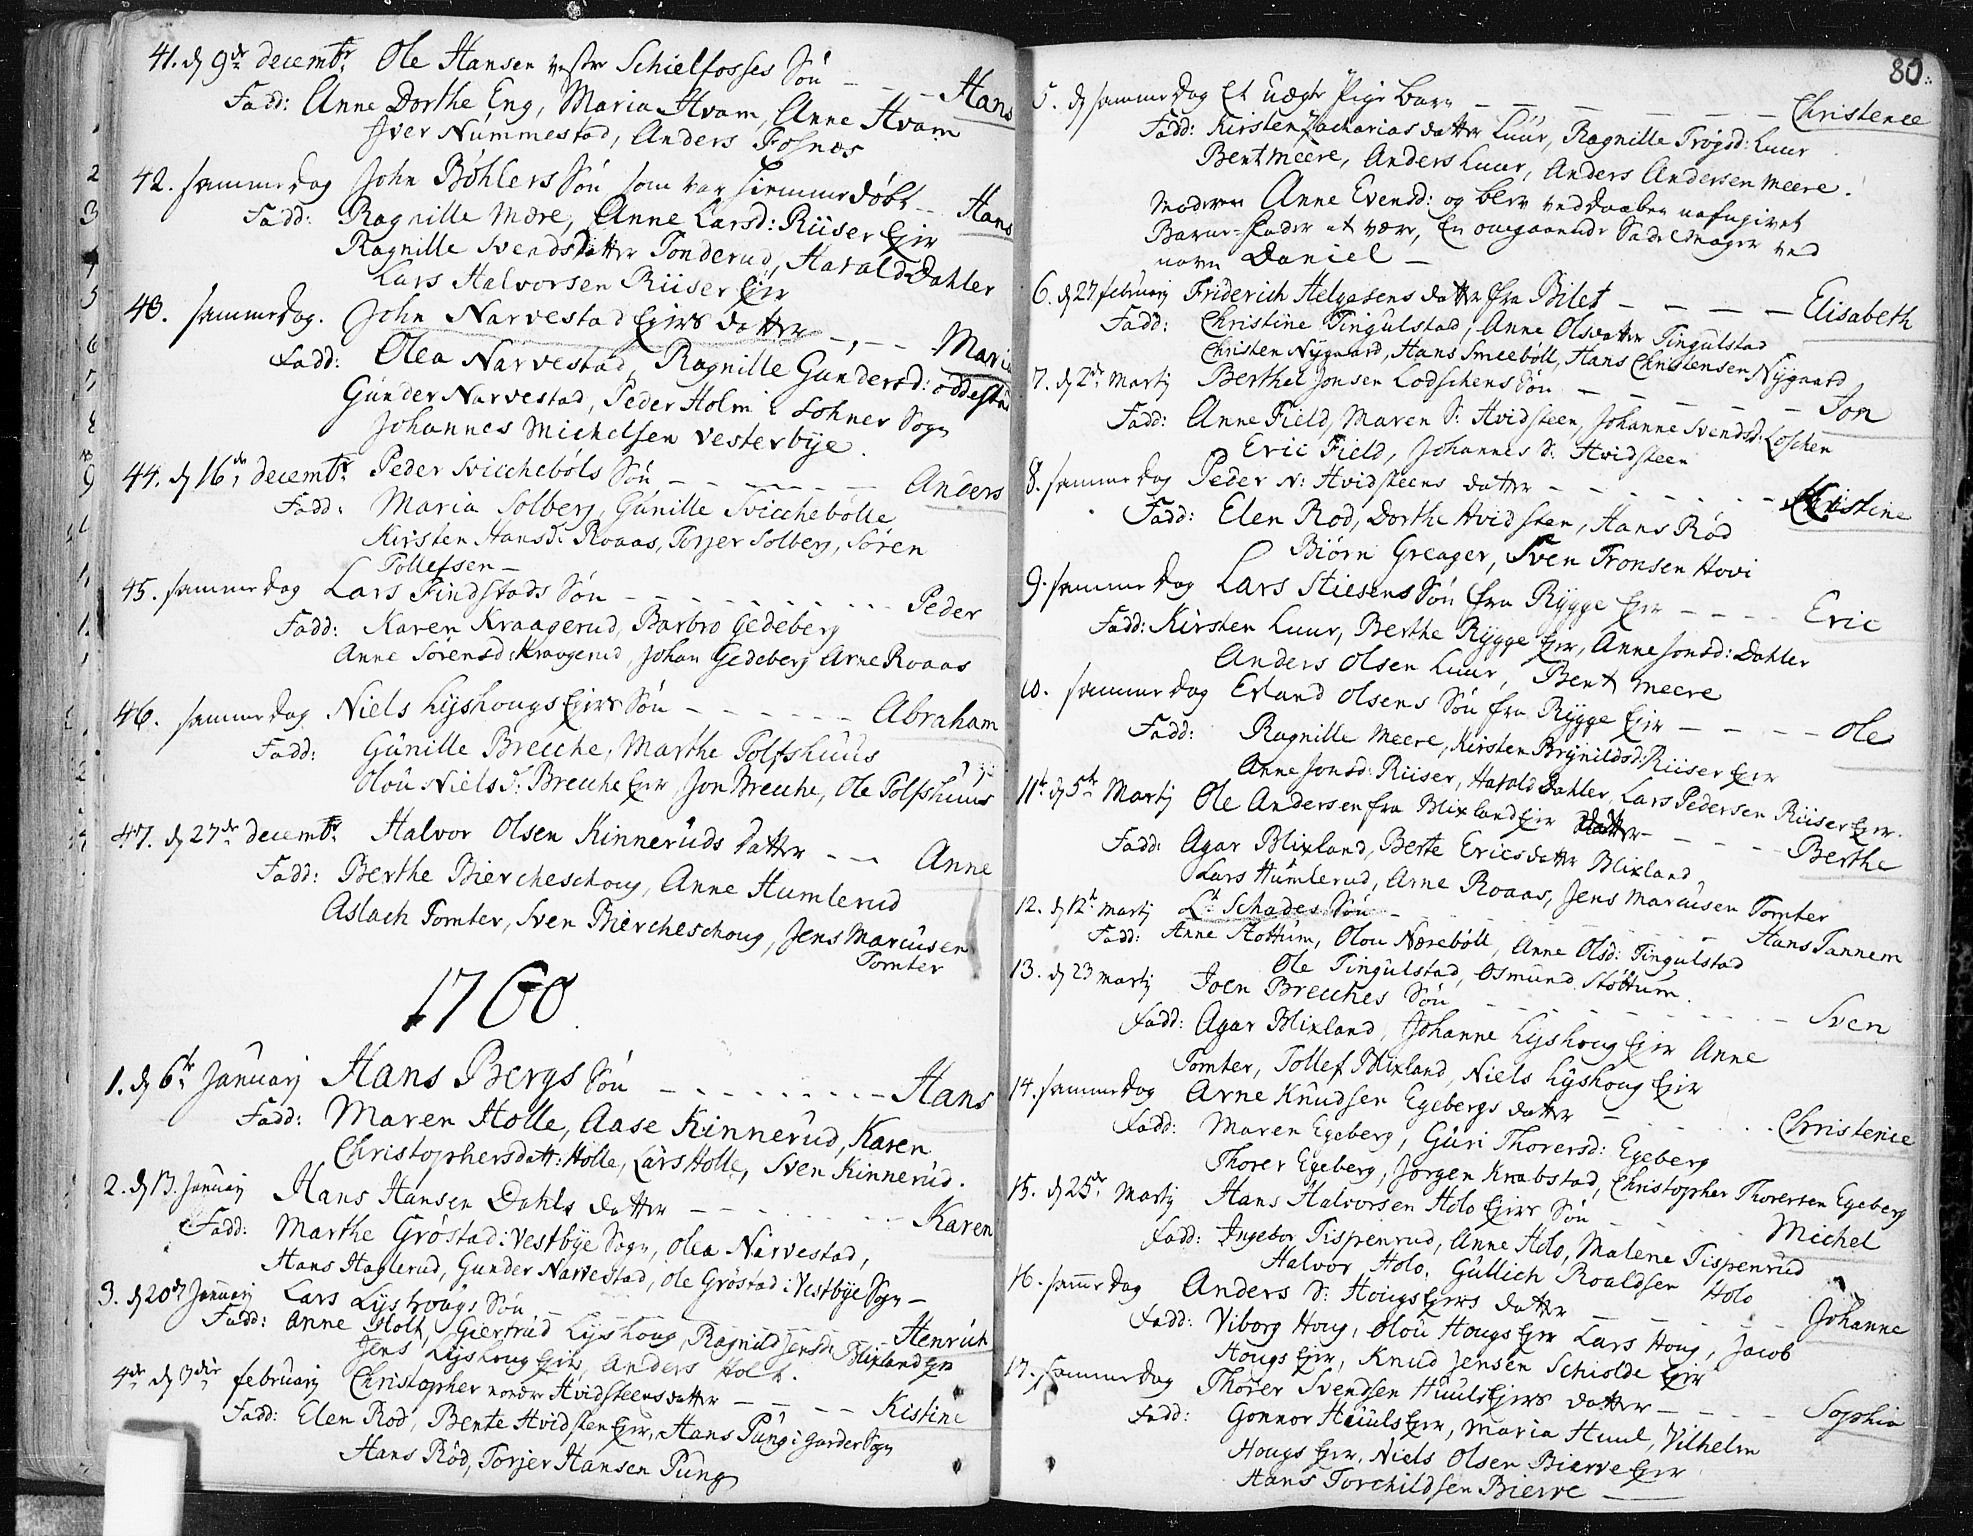 41. d 9de decembr Ole Hansen vestre Schielfosses Søn - - - Hans
Fadd: Anne Dorthe Eng, Maria Hvam, Anne Hvam
Jver Nummestad, Anders Fosnæs
42. samme dag John Bøhlers Søn som var hiemmedøbt - Hans
Fadd: Ragnille Mære, Anne Larsd: Riiser Ejer
Ragnille Svendsdatter Tonderud, Harald Dahler
Lars Halvorsen Riiser Ejer
43. samme dag. John Narvestad Ejers datter - - - Maria
Fadd: Olea Narvestad, Ragnille Gundersd: oddestad
Gunder Narvestad, Peder Holm i Sohner Sogn
Johannes Michelsen Vesterbye.
44. d 16de decembr Peder Svicchebøls Søn - - - Anders
Fadd: Maria Solberg, Gunille Svicchebølle
Kirsten Hansd: Roaas, Torjer Solberg, Søren
Tollefsen -
45. samme dag Lars Findstads Søn - - - Peder
Fadd: Karen Kraagerud, Barbro Gedeberg
Anne Sørensd: Kraagerud, Johan Gedeberg Arne Roaas
46. samme dag Niels Lyshougs Ejers Søn - - - Abraham
Fadd: Gunille Brecche, Marthe Tolfshuus
Olou Nielsd: Brecche Ejer, Jon Brecche, Ole Tolfshuus
47. d 27de decembr Halvor Olsen Kinneruds datter - - Anne
Fadd: Berthe Biercheschoug, Anne Humlerud
Aslach Tomter, Sven Biercheschoug, Jens Marcusen
Tomter
1760.
1. d 6te Januarj Hans Bergs Søn - - - Hans
Fadd: Maren Holle, Aase Kinnerud, Karen
Christophersdatt: Holle, Lars Holle, Sven Kinnerud.
2. d 13. Januarj Hans Hansen Dahls datter - - - Karen
Fadd: Marthe Grøstad i Vestbye Sogn, Olea Narvestad,
Hans Haglerud, Gunder Narvestad, Ole Grøstad i Vestbye Sogn -
3. d 20de Januarj Lars Lyshougs Søn - - - Henrich
Fadd: Anne Holt, Giertrud Lyshoug, Ragnild Jensd: Blixland Ejer
Jens Lyshoug Ejer, Anders Holt.
4de d 3die februarj Christopher nordre Hvidsteens datter - - - Kistine
Fadd: Elen Rød, Bente Hvidsten Ejer, Hans Pung i Garder Sogn
Hans Rød, Torjer Hansen Pung
80.
5. d samme dag Et uægte Pige barn - - - Christence
Fadd: Kirsten Zachariasdatter Luur, Ragnille Trogsd: Luur
Bent Meere, Anders Luur, Anders Andersen Meere.
Moderen Anne Evensd: og blev ved daaben udgivet
Barne-fader at være, En omgaaende Sadelmager ved
navn Daniel -
6. d 27 februarj Friderich Helgesens datter fra Bilet - - - Elisabeth
Fadd: Christine Tingulstad, Anne Olsdatter Tingulstad
Christen Nygaard, Hans Smeebøll, Hans Christensen Nygaard
7. d 2de Martj Berthel Jonsen Lodschens Søn - - - Jon
Fadd: Anne Field, Maren S: Hvidsteen, Johanne Svendsd: Loschen
Eric Field, Johannes S: Hvidsteen
8. samme dag Peder N: Hvidsteens datter - - - Christine
Fadd: Elen Rød, Dorthe Hvidsten, Hans Rød
Biørn Greager, Sven Tronsen Hovi
9. samme dag Lars Stiesens Søn fra Rygge Ejer - - - Eric
Fadd: Kirsten Luur, Berthe Rygge Ejer, Anne Jonsd: Dahler
Anders Olsen Luur, Bent Meere
10. samme dag Erland Olsens Søn fra Rygge Ejer - - - Ole
Fadd: Ragnille Meere, Kirsten Brynildsd: Riiser Ejer
Anne Jonsd: Riiser, Harald Dahler, Lars Pedersen Riiser Ejer.
11te d 5te Martj Ole Andersen fra Blixland Ejer datter - - - Berthe
Fadd: Agar Blixland, Berte Ericsdatter Blixland,
Lars Humlerud, Arne Roaas, Jens Marcusen Tomter
12. d 12te Martj Lt Schades Søn - - - Hans Tannem
Fadd: Anne Støttum, Olou Nærebøll, Anne Olsd: Tingulstad
Ole Tingulstad, Osmund Støttum.
13. d 23 Martj Joen Brecches Søn - - - Sven
Fadd: Agar Blixland, Johanne Lyshoug Ejer Anne
Tomter, Tollef Blixland, Niels Lyshoug Ejer
14. samme dag Arne Knudsen Egebergs datter - - - Christence
Fadd: Maren Egeberg, Guri Thorersd: Egeberg
Thorer Egeberg, Jørgen Knabstad, Christopher Thorersen Egeberg
15. d 25de Martj Hans Halvorsen Holo Ejers Søn - - - Michel
Fadd: Ingebor Tispenrud, Anne Holo, Malene Tispenrud
Halvor Holo, Gullich Roaldsen Holo
16. samme dag Anders S: Hougs Ejers datter - - - Johanne
Fadd: Viborg Houg, Olou Hougs Ejer Lars Houg, Jacob
Hougs Ejer, Knud Jensen Schiolde Ejer
17. samme dag Thorer Svendsen Huuls Ejers datter - - - Sophia
Fadd: Gonnor Huuls Ejer, Maria Huul, Vilhelm
Hougs Ejer, Niels Olsen Bierve Ejer
Hans Torchildsen Bierve -